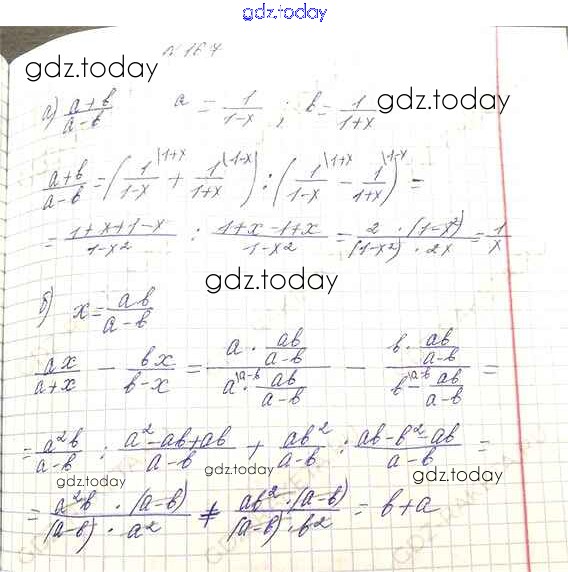 gdz.today
N 167
gdz.today
а) (a+b)/(a-b)   a = 1/(1-x) ; b = 1/(1+x)
gdz.today
(a+b)/(a-b) = (1/(1-x) \1+x + 1/(1+x) \1-x) : (1/(1-x) \1+x - 1/(1+x) \1-x) =
= (1+x+1-x)/(1-x²) : (1+x-1+x)/(1-x²) = (2·(1-x²))/((1-x²)·2x) = 1/x
gdz.today
б) x = ab/(a-b)
ax/(a+x) - bx/(b-x) = (a · ab/(a-b))/(a \a-b - ab/(a-b)) - (b · ab/(a-b))/(b \a-b - ab/(a-b)) =
= a²b/(a-b) : (a²-ab+ab)/(a-b) + ab²/(a-b) : (ab-b²-ab)/(a-b) =
gdz.today gdz.today gdz.today
= (a²b · (a-b))/((a-b) · a²) + (ab² · (a-b))/((a-b) · b²) = b+a